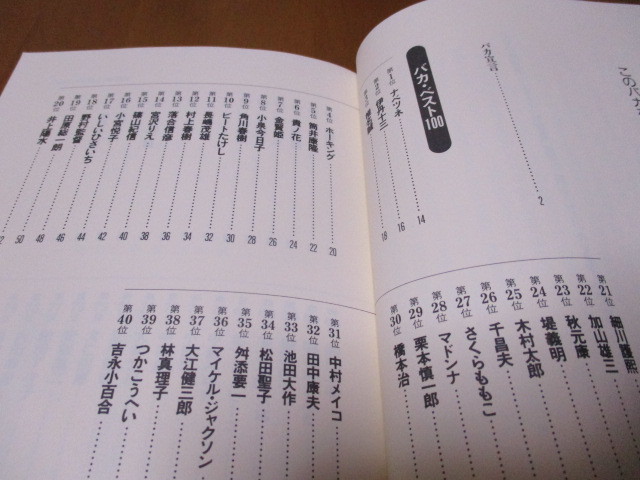 このバカ
バカ宣言 2
バカ・ベスト100
第1位 ナベツネ 14
第2位 伊丹十三 16
第3位 18
第4位 ホーキング 20
第5位 筒井康隆 22
第6位 貴ノ花 24
第7位 金賢姫 26
第8位 小泉今日子 28
第9位 角川春樹 28
第10位 ビートたけし 30
第11位 長嶋茂雄 32
第12位 村上春樹 34
第13位 落合信彦 34
第14位 宮沢りえ 36
第15位 篠山紀信 38
第16位 小宮悦子 40
第17位 いしいひさいち 42
第18位 野村監督 44
第19位 田原総一朗 46
第20位 井上陽水 48
50
第21位 細川護熙
第22位 加山雄三
第23位 秋元康
第24位 堤義明
第25位 木村太郎
第26位 千昌夫
第27位 さくらももこ
第28位 マドンナ
第29位 栗本慎一郎
第30位 橋本治
第31位 中村メイコ
第32位 田中康夫
第33位 池田大作
第34位 松田聖子
第35位 舛添要一
第36位 マイケル・ジャクソン
第37位 大江健三郎
第38位 林真理子
第39位 つかこうへい
第40位 吉永小百合